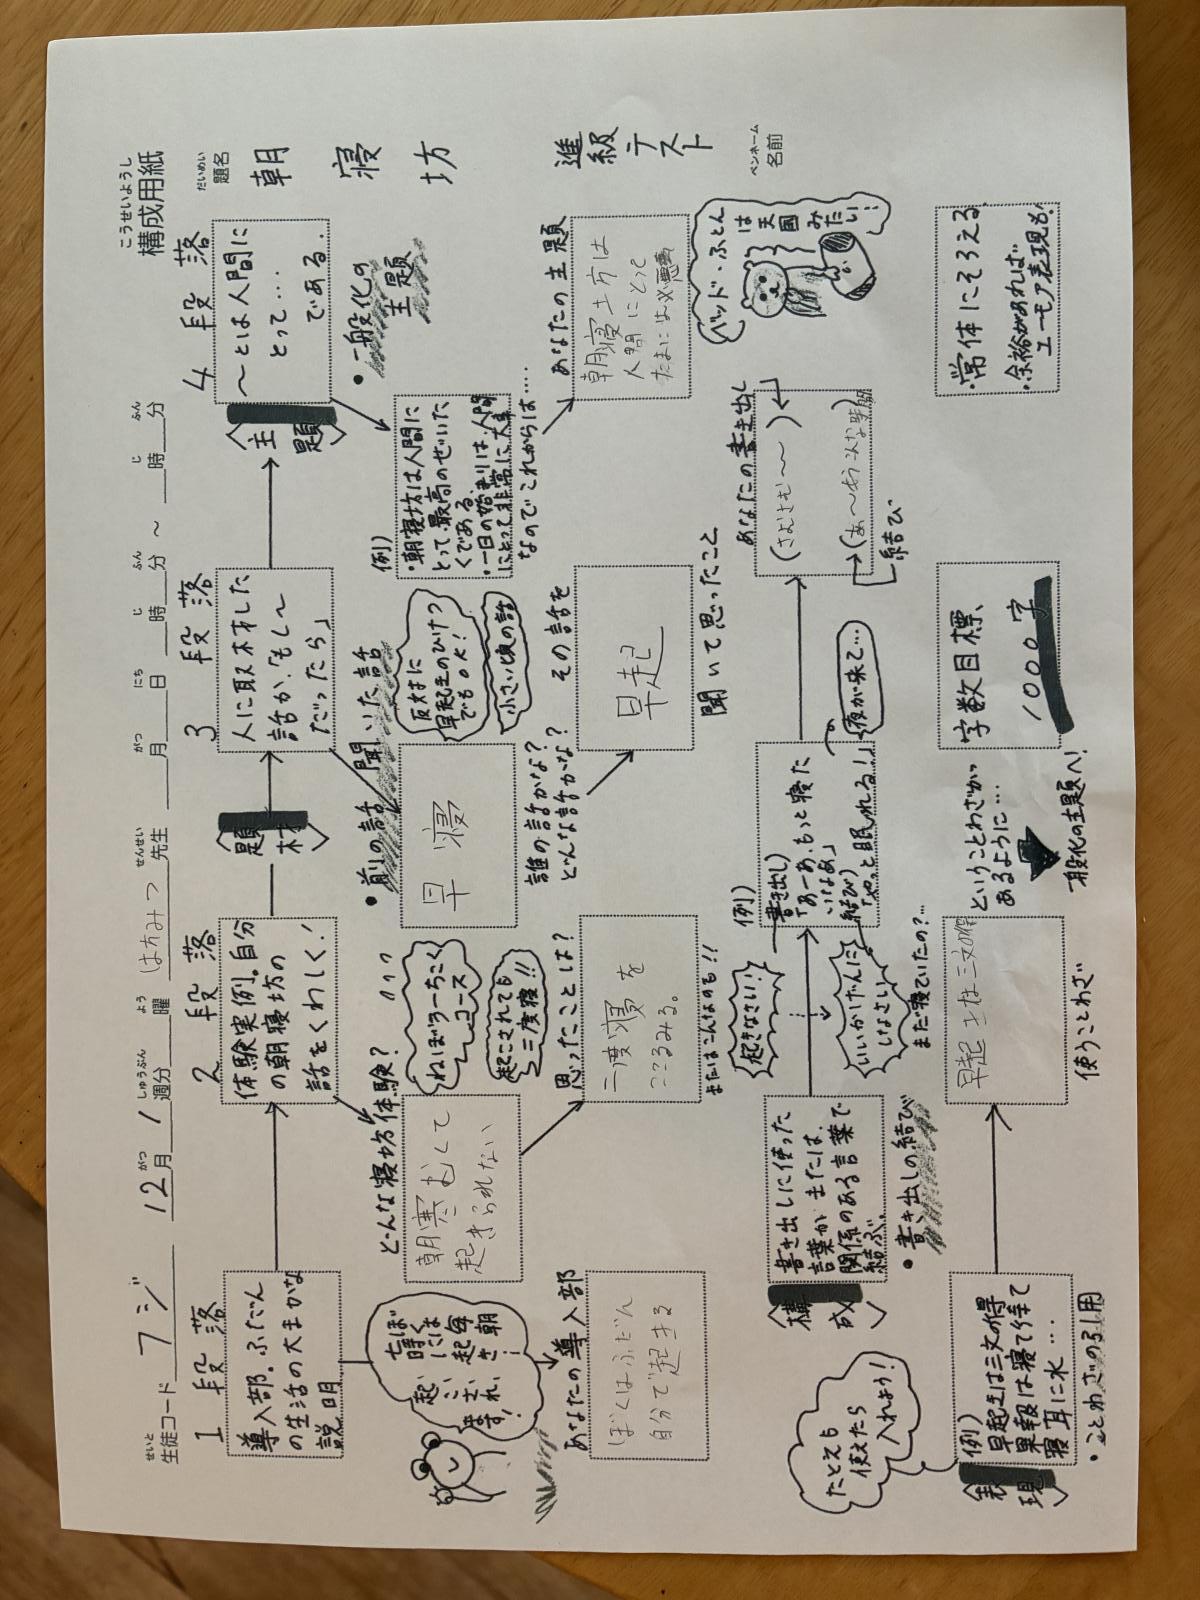 構成用紙
こうせいようし
生徒コード フジ 12月 1週分 曜 はちみつ先生 月 日 時 分 ～ 時 分
せいと がつ しゅうぶん よう せんせい がつ にち じ ふん じ ふん
題名
だいめい
朝寝坊
進級テスト
ペンネーム
名前
1段落
導入部。ふだん
の生活の大まかな
説明
ぼくは毎朝
七時には起
き
あなたの導入部
ぼくはふだん
自分で起きる
2段落
体験実例。自分
の朝寝坊の
話をくわしく！
どんな寝坊体験？
朝寒むくて
起きられない
ねぼうーちこく
コース
起こされても
二度寝!!
思ったことは？
二度寝を
こころみる。
またはこんなのも!!
〈題材〉
3段落
人に取材した
話か、「もし～
だったら」
・前の話 聞いた話
早寝
反対に
早起きのひけつ
でもOK！
小さい頃の話
誰の話かな？
どんな話かな？
その話を
早起
聞いて思ったこと
〈主題〉
4段落
～とは人間に
とって…
である。
・一般化の
主題
例）
・朝寝坊は人間に
とって最高のぜいた
くである。
・一日の始まりは、人間
にとって非常に大事
なのでこれからは…
あなたの主題
朝寝坊は
人間にとって
たまには必要
ベッド・ふとん
は天国みたい！
〈構成〉
書き出しに使った
言葉か、または、
関係のある言葉で
結ぶ。
・書き出しの結び
起きなさい！
いいかげんに
しなさい
まだ寝ていたの？…
例）
書き出し）
「あーあ、もっと寝た
いなあ」
結び）
「やっと眠れる！」
夜が来て…
あなたの書き出し
（さむさむ～）
（あ～もうこんな時間）
結び
〈表現〉
たとえも
使えたら
入れよう！
例）
早起きは三文の得
果報は寝て待て
寝耳に水…
・ことわざの引用
早起きは三文の得
使うことわざ
ということわざが
あるように…
一般化の主題へ！
字数目標、
1000字
・常体にそろえる
・余裕があれば
ユーモア表現も！